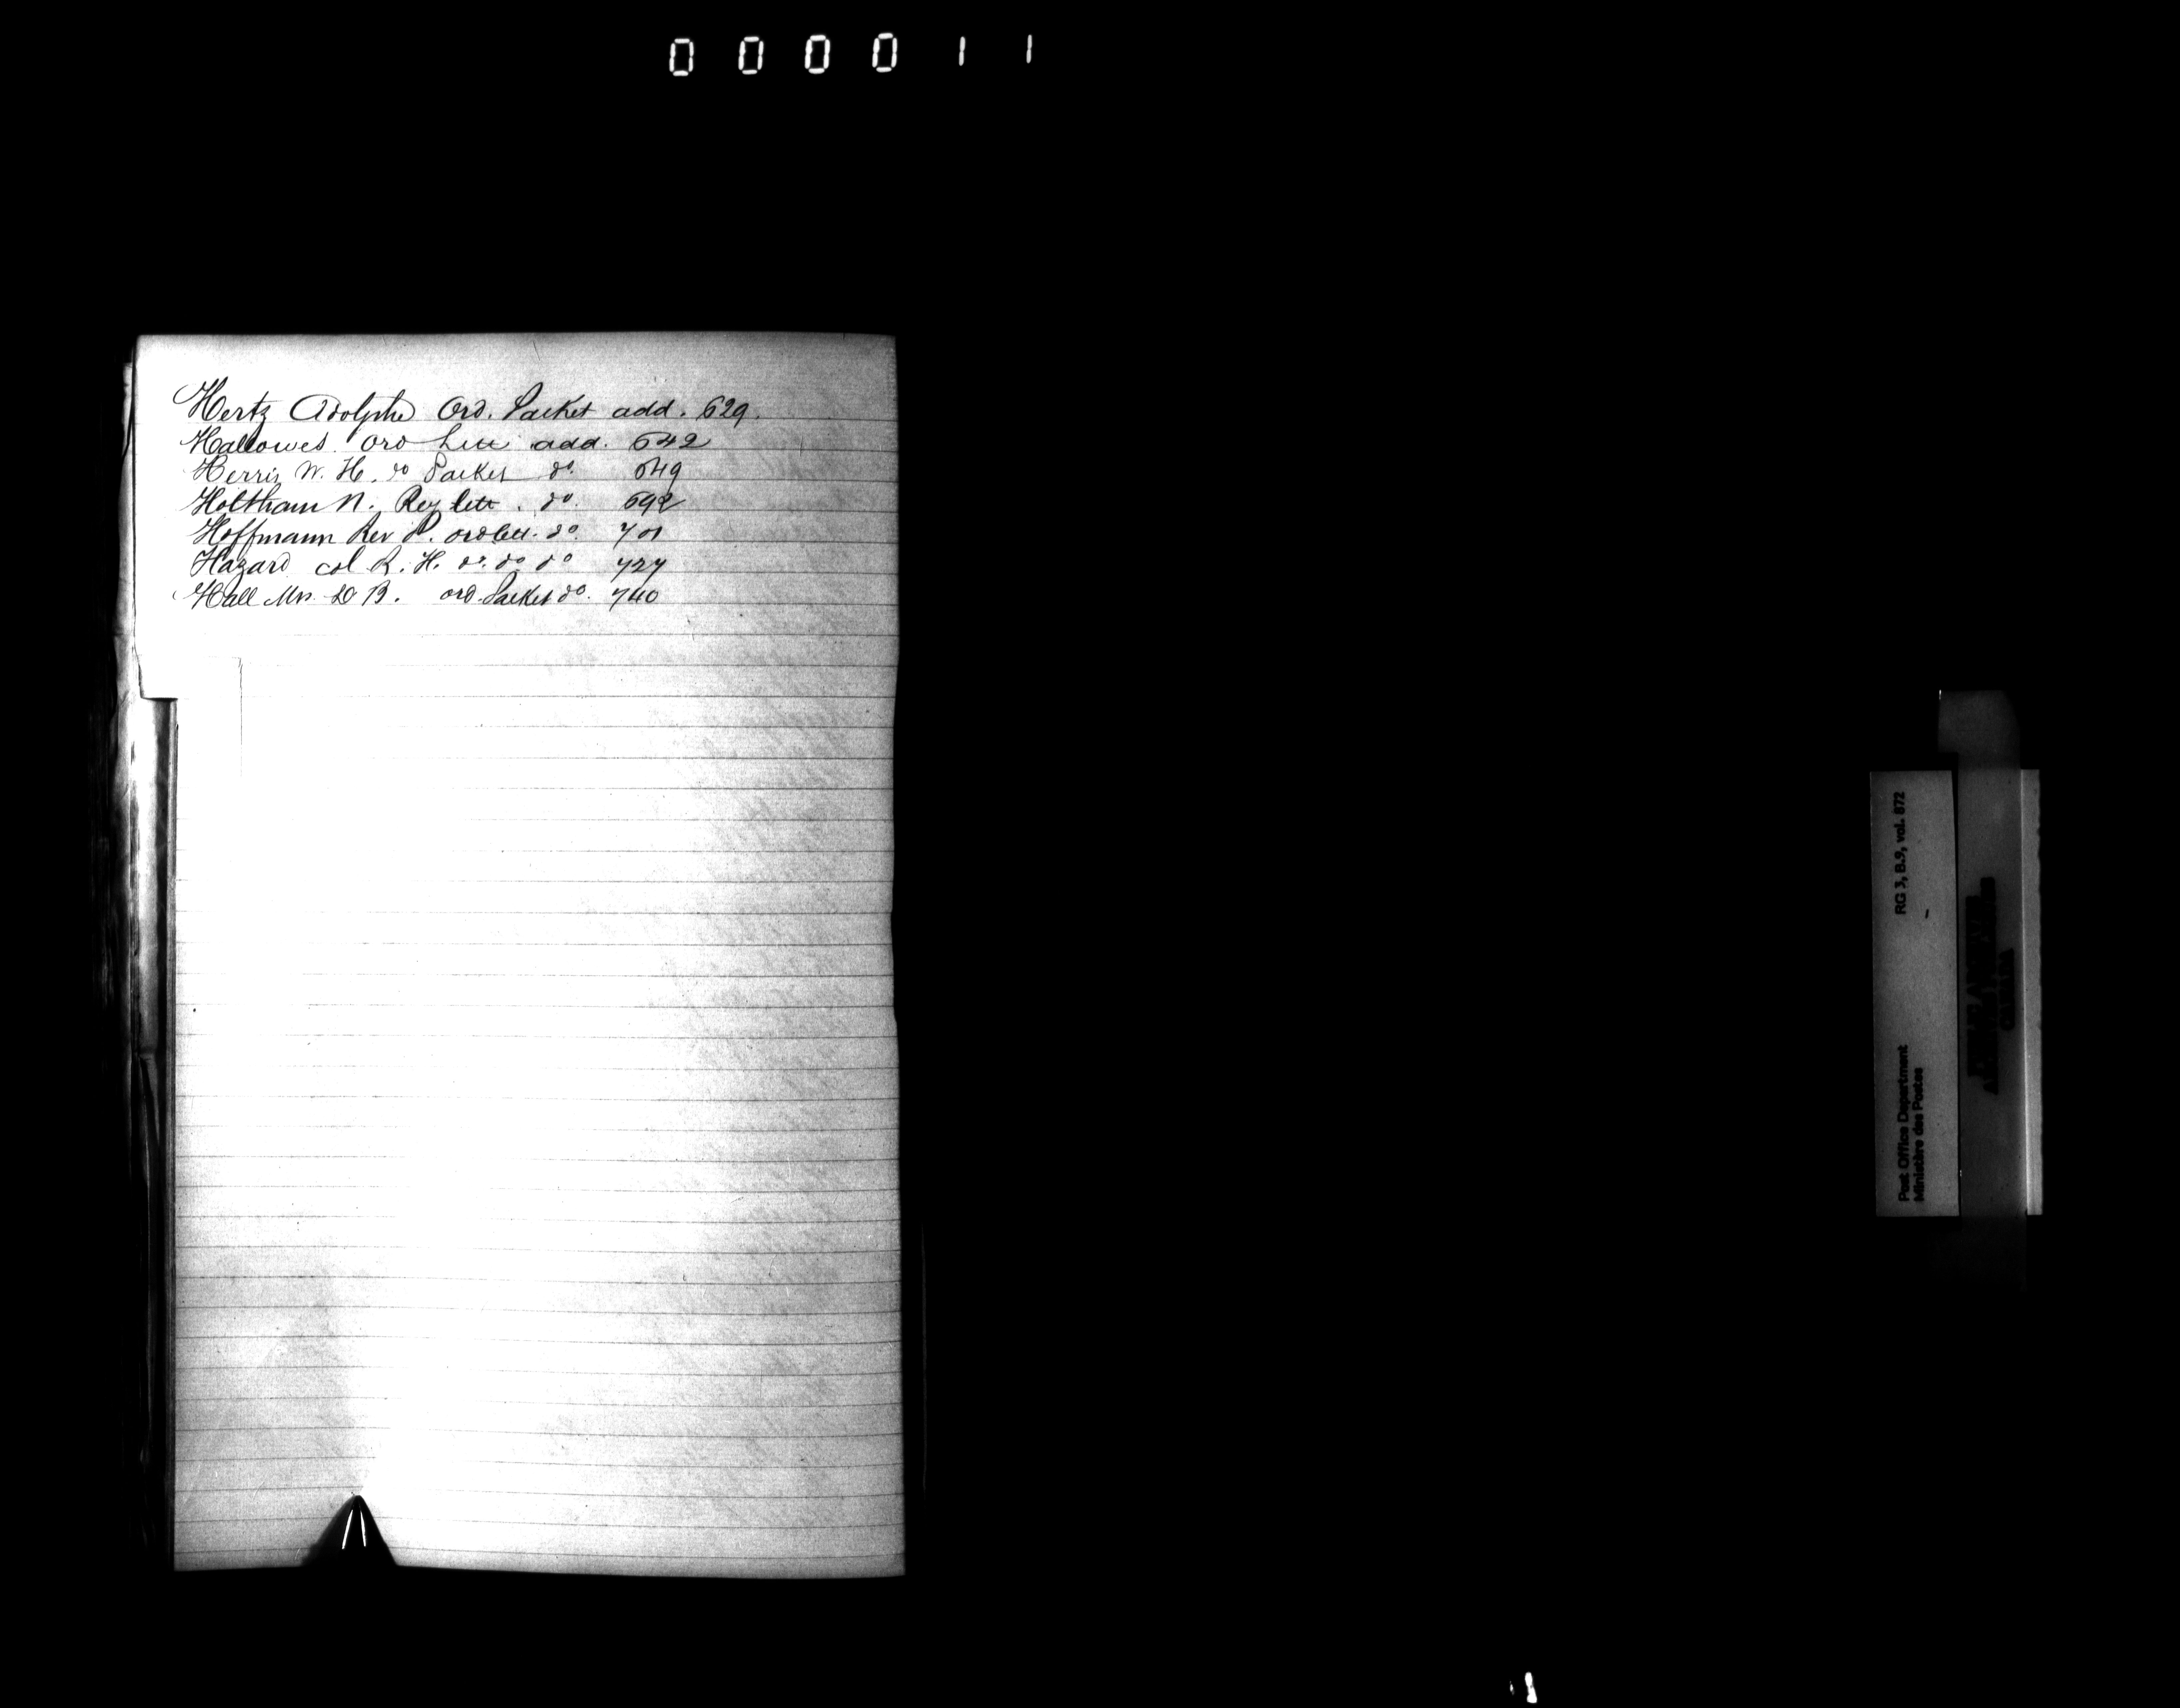 000011
Hertz Adolphe Ord. Packet add. 629.
Hallowes. Ord Lett add. 642
Herris W. H. do Packet do. 649
Holtham N. Reg lett. do. 692
Hoffmann Rev P. ord lett. do. 701
Hazard col R. H. do. do do 727
Hall Mrs. D B. ord. Packet do. 740
RG 3, B.9, vol. 872
Post Office Department
Ministère des Postes